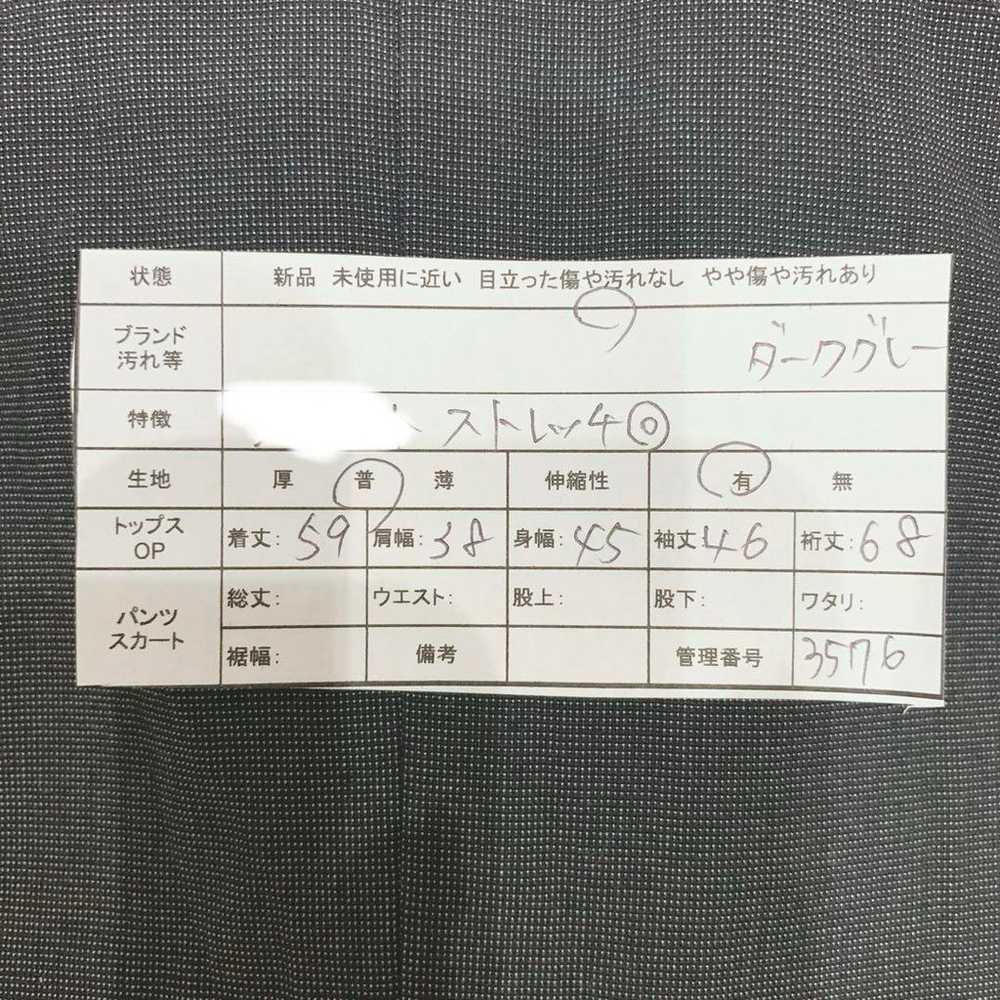 状態 新品 未使用に近い 目立った傷や汚れなし やや傷や汚れあり
ブランド
汚れ等 ダークグレー
特徴 ストレッチ◎
生地 厚 普 薄 伸縮性 有 無
トップス
OP 着丈: 59 肩幅: 38 身幅: 45 袖丈: 46 裄丈: 68
パンツ
スカート 総丈: ウエスト: 股上: 股下: ワタリ:
裾幅: 備考 管理番号 3576